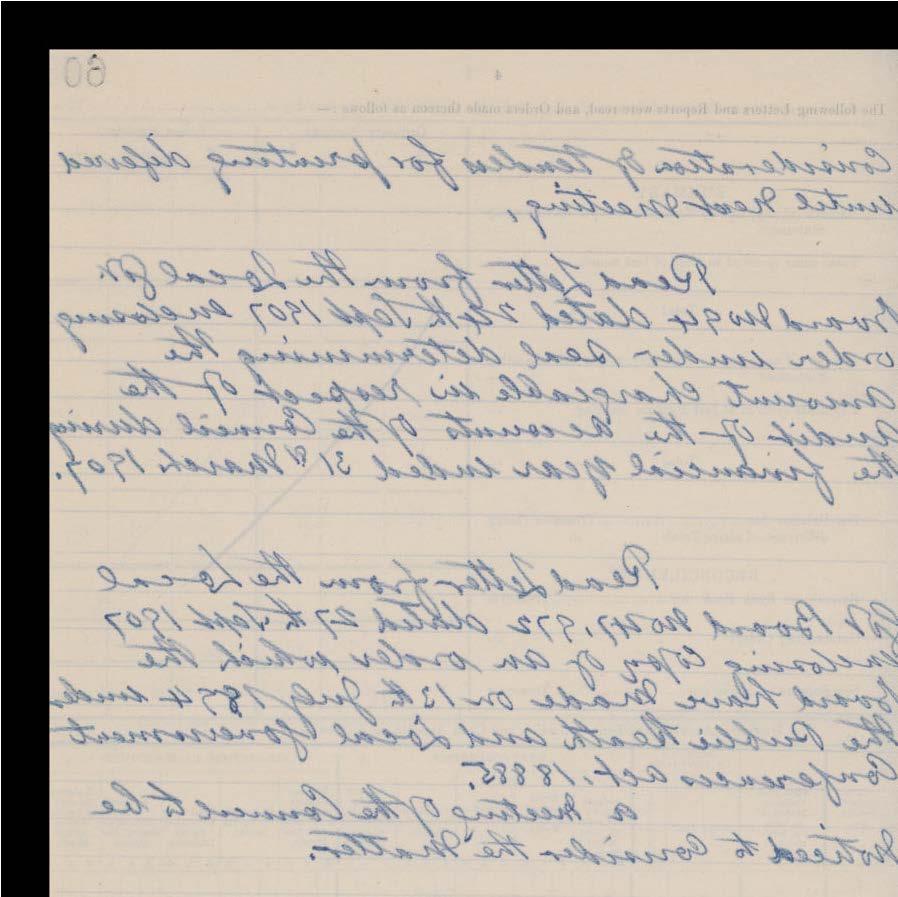 60
4
The following Letters and Reports were read, and Orders made thereon as follows :—
Consideration of tenders for printing defered
until next Meeting.
Read Letter from the Local Gov.
Board No 94 dated 24th Sept 1907 enclosing
order under seal determining the
amount chargeable in respect of the
Audit of the accounts of the Council during
the financial year ended 31st March 1907.
Read Letter from the Local
Gov Board No 47,972 dated 27th Sept 1907
Enclosing Copy of an order which the
Board have Made on 13th July 1894 under
the Public Health and Local Government
Conferences act. 1885.
a Meeting of the Council to be
Noticed to Consider the Matter.